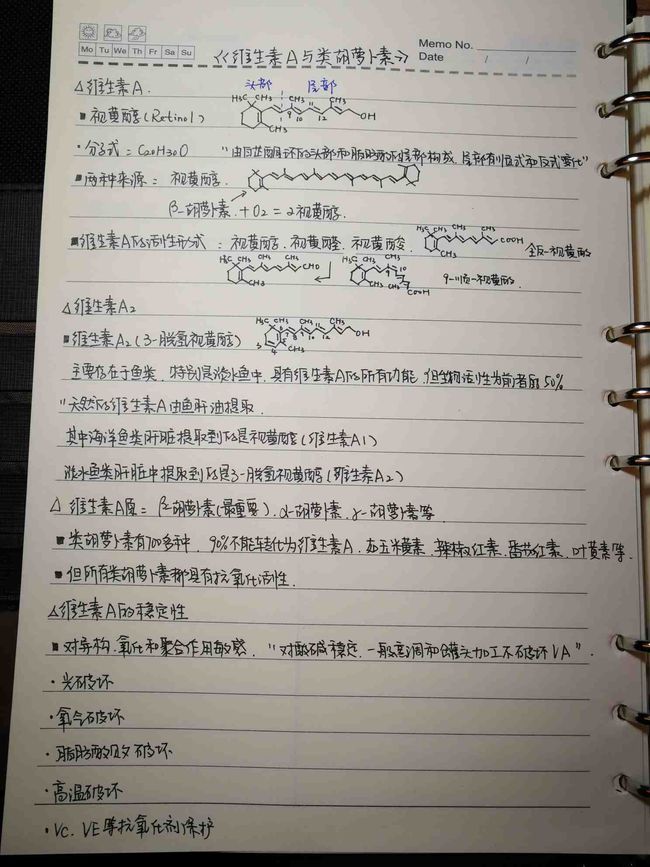 Mo Tu We Th Fr Sa Su
Memo No.
Date / /
《维生素A与类胡萝卜素》
△维生素A. 头部 尾部
■视黄醇(Retinol) H₃C CH₃ CH₃ CH₃ 9 10 11 12 OH CH₃
·分子式=C20H30O "由β芷酮环的头部和脂肪酸的尾部构成,尾部有顺式和反式变化"
■两种来源=视黄醇.
β-胡萝卜素.+O2=2视黄醇.
■维生素A的活性形式:视黄醇.视黄醛.视黄酸. H₃C CH₃ CH₃ CH₃ COOH CH₃ 全反-视黄酸
H₃C CH₃ CH₃ CH₃ CHO CH₃ H₃C CH₃ CH₃ 9 10 CH₃ CH₃ COOH 9-顺-视黄酸.
△维生素A2
■维生素A2(3-脱氢视黄醇) H₃C CH₃ CH₃ CH₃ OH CH₃
主要存在于鱼类.特别是淡水鱼中.具有维生素A的所有功能.但生物活性为前者的50%
"天然的维生素A由鱼肝油提取.
其中海洋鱼类肝脏提取到的是视黄醇(维生素A1)
淡水鱼类肝脏中提取到的是3-脱氢视黄醇(维生素A2)
△维生素A原=β-胡萝卜素(最重要).α-胡萝卜素.γ-胡萝卜素等
■类胡萝卜素有100多种.90%不能转化为维生素A.如玉米黄素.辣椒红素.番茄红素.叶黄素等.
■但所有类胡萝卜素都具有抗氧化活性.
△维生素A的稳定性
■对异构.氧化和聚合作用敏感."对酸碱稳定.一般烹调和罐头加工不破坏VA".
·光破坏
·氧气破坏
·脂肪酸败破坏
·高温破坏
·VC.VE等抗氧化剂保护